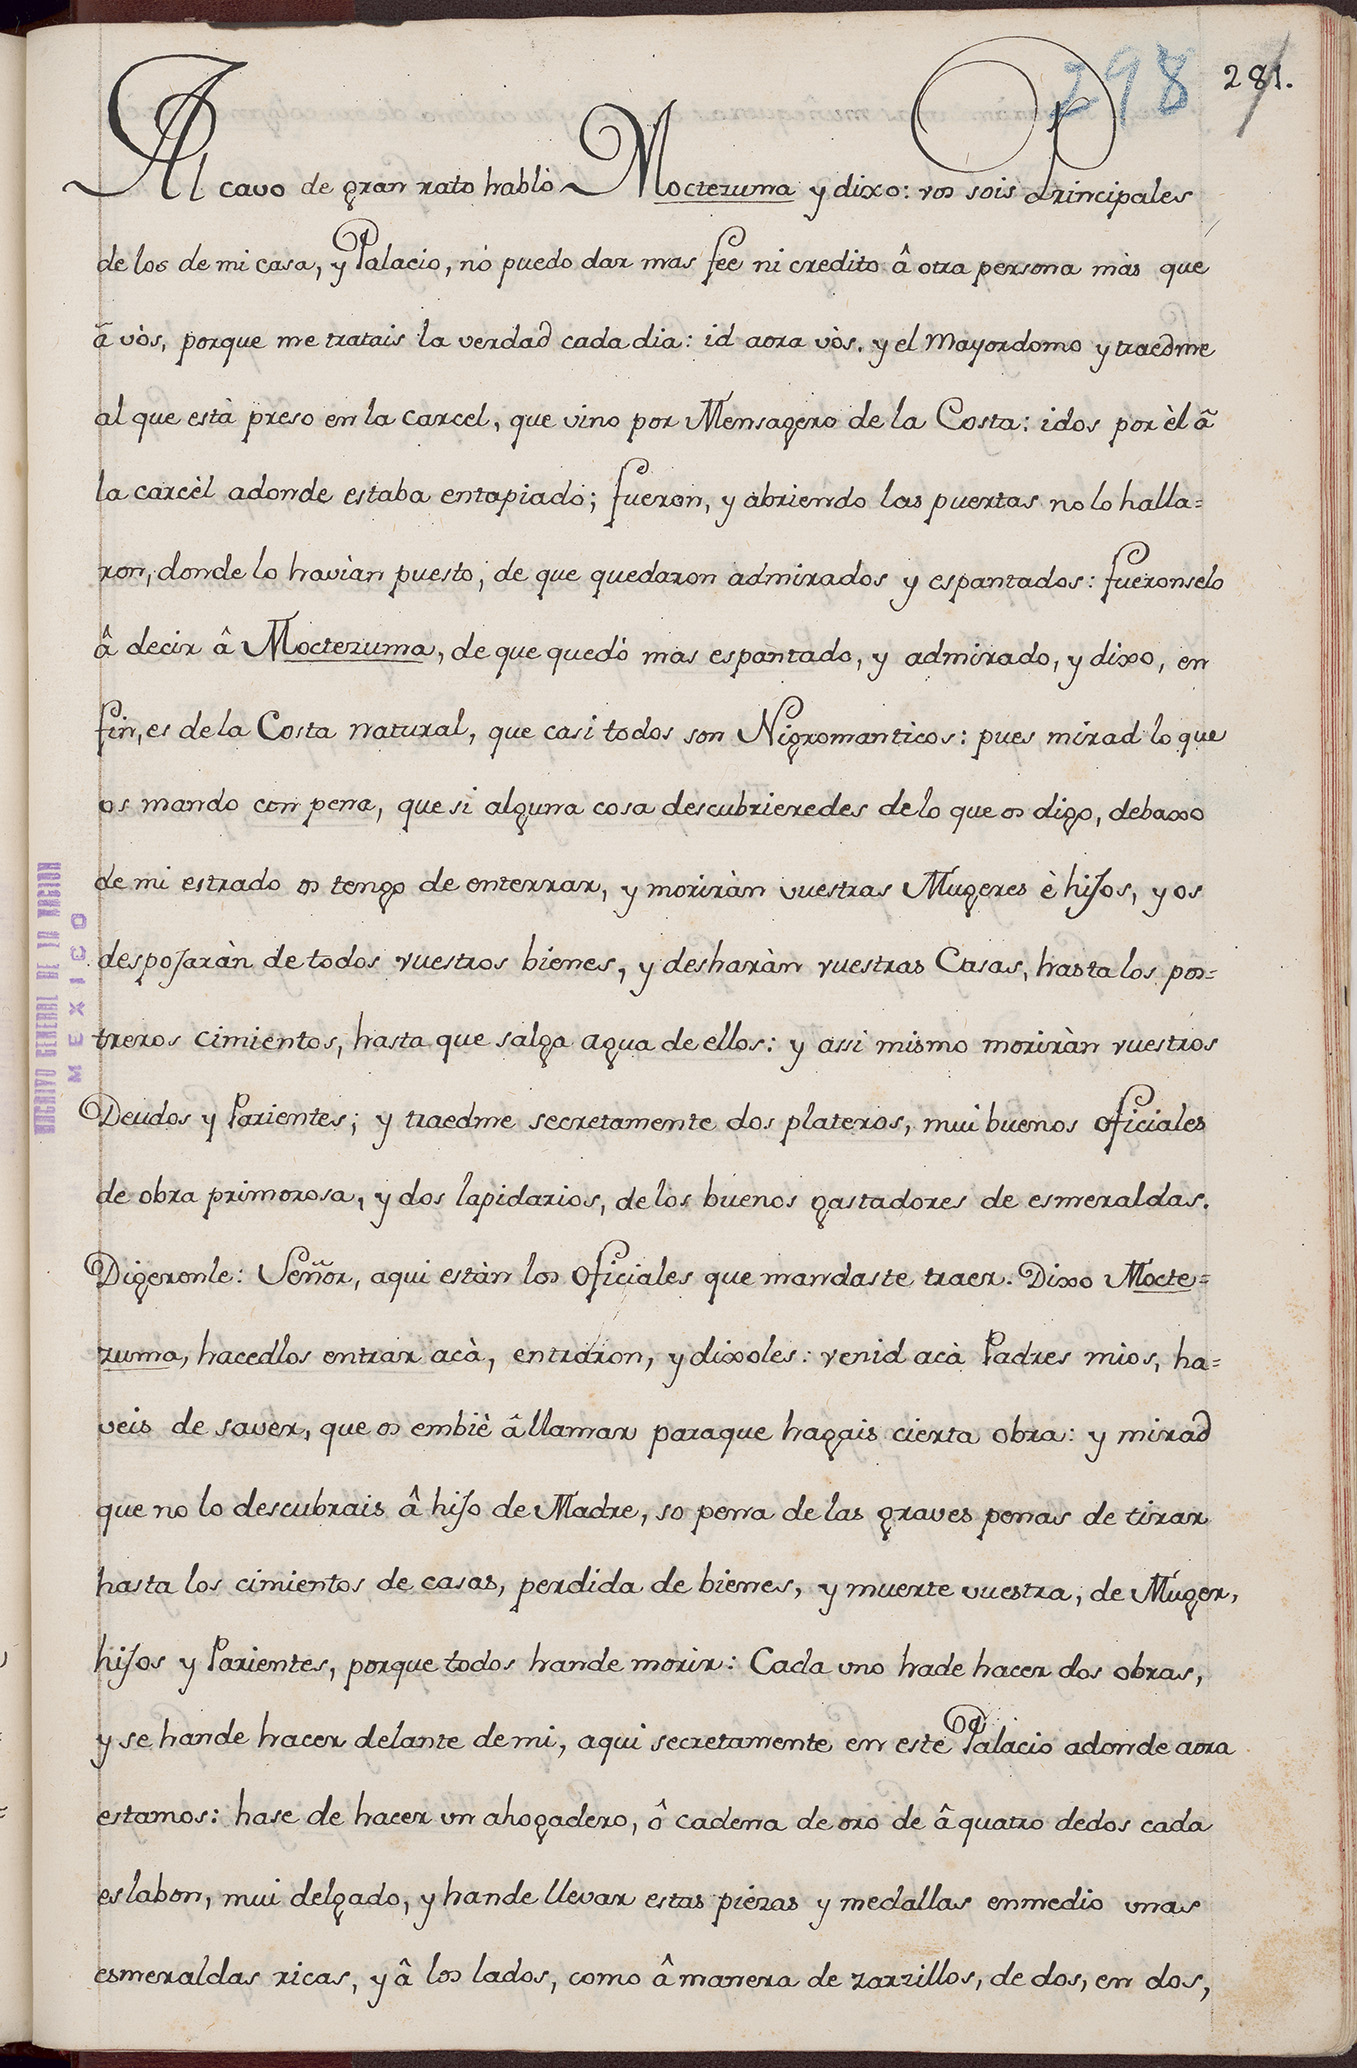 298 281.
Al cavo de gran rato hablò Moctezuma y dixo: vos sois Principales
de los de mi casa, y Palacio, nò puedo dar mas fee ni credito â otra persona màs que
ã vòs, porque me tratais la verdad cada dia: id aora vòs, y el Mayordomo y traedme
al que està preso en la Carcel, que vino por Mensagero de la Costa: idos por èl ã
la carcèl adonde estaba entapiado; fueron, y abriendo las puertas no lo halla=
ron, donde lo havian puesto, de que quedaron admirados y espantados: fueronselo
â decir â Moctezuma, de que quedò mas espantado, y admirado, y dixo, en
fin, es de la Costa natural, que casi todos son Nigromanticos: pues mirad lo que
os mando con pena, que si alguna cosa descubrieredes de lo que os digo, debaxo
de mi estrado os tengo de enterrar, y moriràn vuestras Mugeres è hijos, y os
despojaràn de todos vuestros bienes, y desharàn vuestras Casas, hasta los pos=
treros cimientos, hasta que salga agua de ellos: y assi mismo moriràn vuestros
Deudos y Parientes; y traedme secretamente dos plateros, mui buenos oficiales
de obra primorosa, y dos lapidarios, de los buenos gastadores de esmeraldas.
Digeronle: Señor, aqui estàn los Oficiales que mandaste traer. Dixo Mocte=
zuma, hacedlos entrar acà, entraron, y dixoles: venid acà Padres mios, ha=
veis de saver, que os embiè â llamar paraque hagais cierta obra: y mirad
que no lo descubrais â hijo de Madre, so pena de las graves penas de tirar
hasta los cimientos de casas, perdida de bienes, y muerte vuestra, de Muger,
hijos y Parientes, porque todos hande morir: Cada uno hade hacer dos obras,
y se hande hacer delante de mi, aqui secretamente en este Palacio adonde aora
estamos: hase de hacer un ahogadero, ô cadena de oro de â quatro dedos cada
eslabon, mui delgado, y hande llevar estas piezas y medallas enmedio unas
esmeraldas ricas, y â los lados, como â manera de zarzillos, de dos, en dos,
ARCHIVO GENERAL DE LA NACION
MEXICO